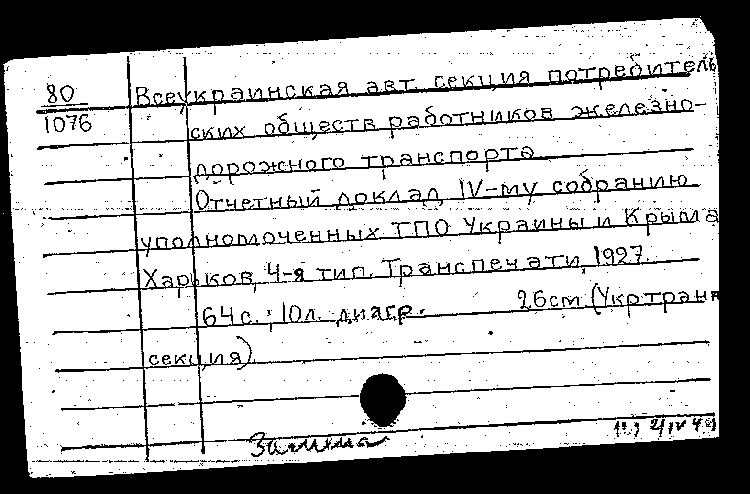 80
1076
Всеукраинская авт. секция потребитель
ских обществ работников железно-
дорожного транспорта.
Отчетный доклад IV-му собранию
уполномоченных ТПО Украины и Крыма
Харьков, 4-я тип. Транспечати, 1927.
64 с.; 10л. диагр. 26см (Укртранс
секция)